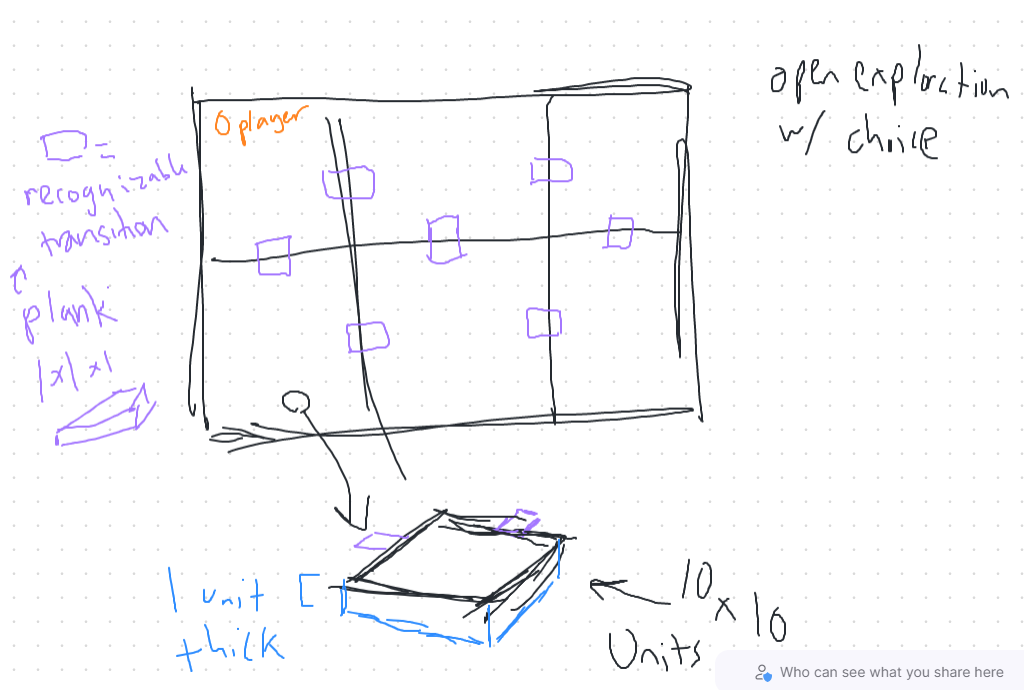 open exploration
w/ choice
O player
□ =
recognizable
transition
↑
plank
1x1x1
1 unit [
thick
10 x 10
Units
Who can see what you share here